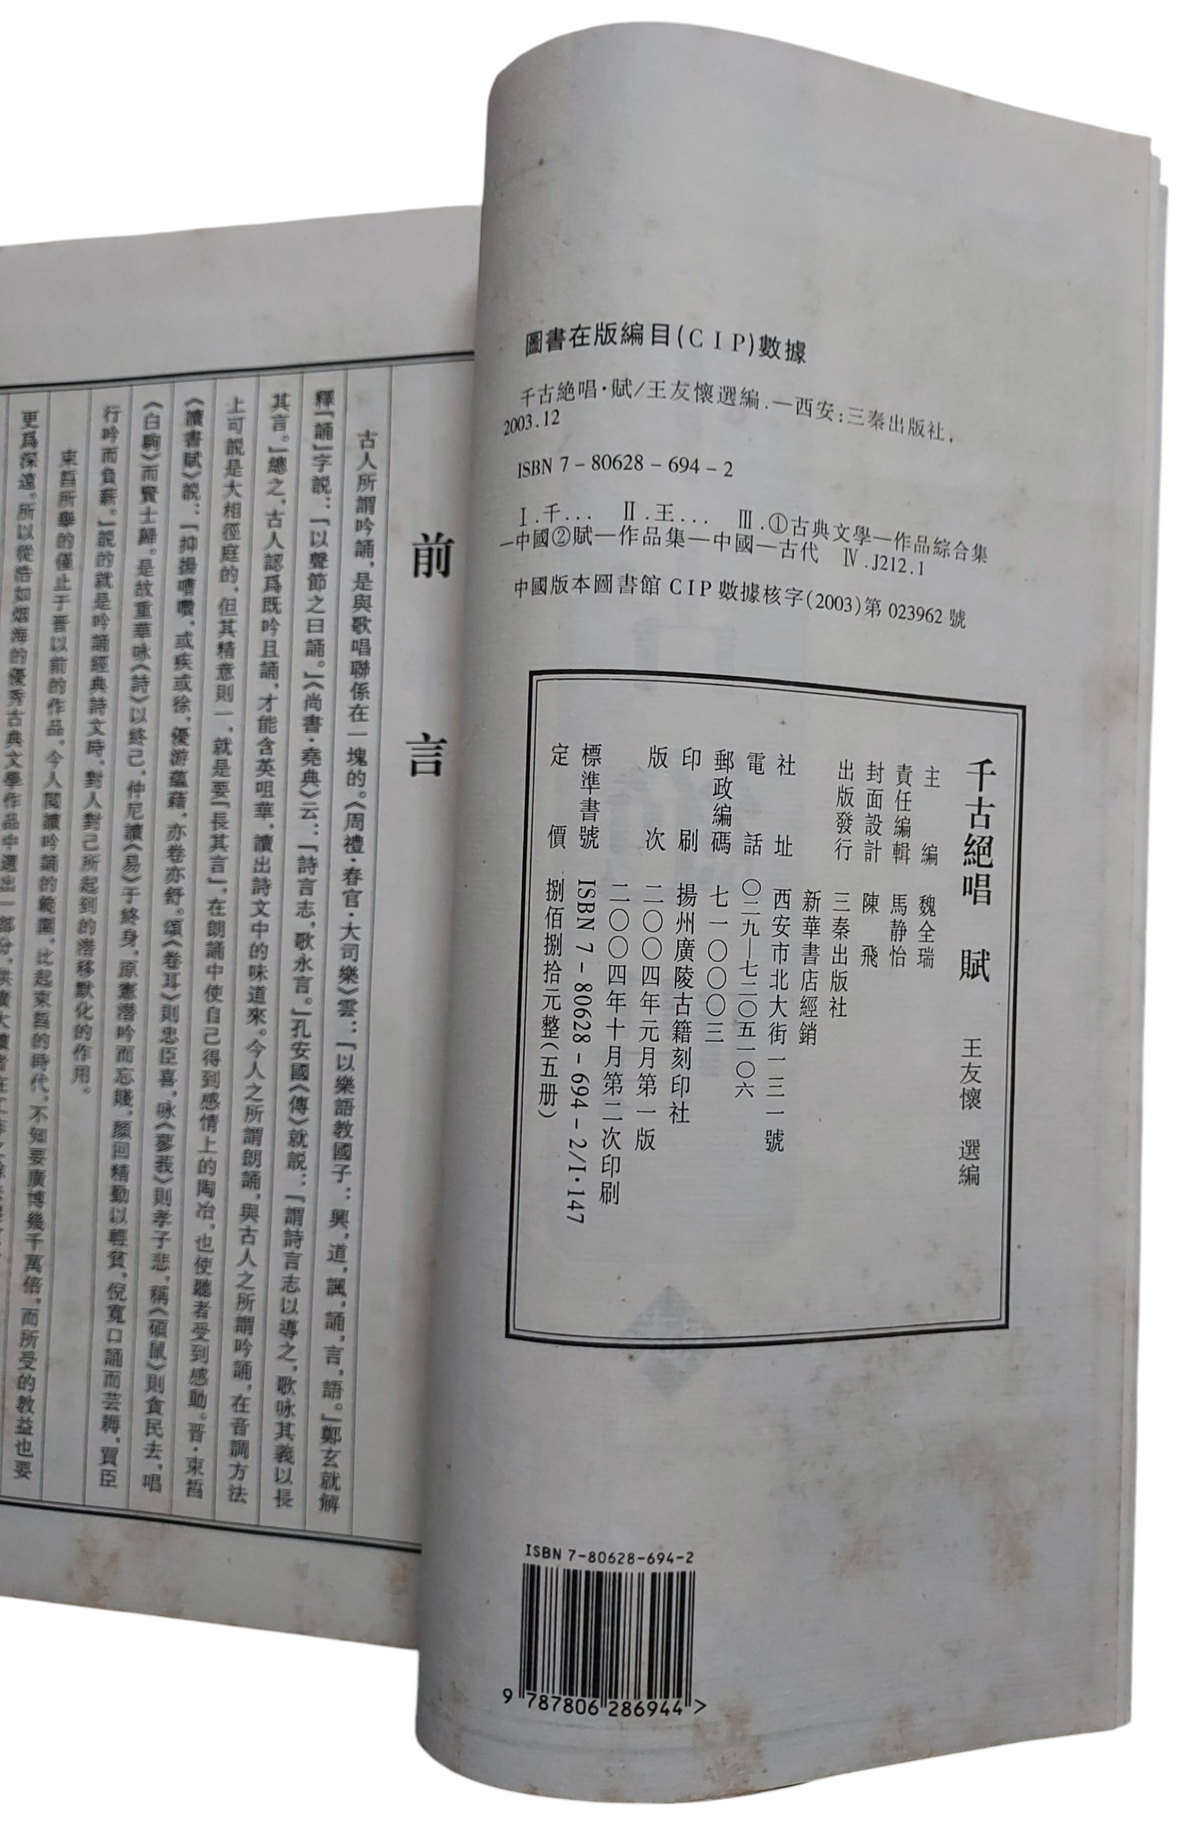 圖書在版編目(CIP)數據
千古絕唱·賦/王友懷選編.—西安:三秦出版社,
2003.12
ISBN 7-80628-694-2
Ⅰ.千… Ⅱ.王… Ⅲ.①古典文學—作品綜合集
—中國②賦—作品集—中國—古代 Ⅳ.J212.1
中國版本圖書館CIP數據核字(2003)第023962號
千古絕唱 賦 王友懷 選編
主編 魏全瑞
責任編輯 馬静怡
封面設計 陳飛
出版發行 三秦出版社
新華書店經銷
社址 西安市北大街一三一號
電話 〇二九—七二〇五一〇六
郵政編碼 七一〇〇〇三
印刷 揚州廣陵古籍刻印社
版次 二〇〇四年元月第一版
二〇〇四年十月第二次印刷
標準書號 ISBN 7-80628-694-2/I·147
定價 捌佰捌拾元整(五册)
ISBN 7-80628-694-2
9 787806 286944 >
前言
古人所謂吟誦,是與歌唱聯係在一塊的。《周禮·春官·大司樂》雲:「以樂語教國子:興,道,諷,誦,言,語。」鄭玄就解
釋「誦」字說:「以聲節之曰誦。」《尚書·堯典》云:「詩言志,歌永言。」孔安國《傳》就説:「謂詩言志以導之,歌咏其義以長
其言。」總之,古人認爲既吟且誦,才能含英咀華,讀出詩文中的味道來。今人之所謂朗誦,與古人之所謂吟誦,在音調方法
上可説是大相徑庭的,但其精意則一,就是要「長其言」,在朗誦中使自己得到感情上的陶冶,也使聽者受到感動。晋·束晳
《讀書賦》説:「抑揚嘈囋,或疾或徐,優游藴藉,亦卷亦舒。頌《卷耳》則忠臣喜,咏《蓼莪》則孝子悲,稱《碩鼠》則貪民去,唱
《白駒》而賢士歸。是故重華咏《詩》以終己,仲尼讀《易》于終身,原憲潛吟而忘賤,顔回精勤以輕貧,倪寬口誦而芸耨,買臣
行吟而負薪。」説的就是吟誦經典詩文時,對人對己所起到的潛移默化的作用。
束晳所舉的僅止于晋以前的作品,今人閲讀吟誦的範圍,比起束晳的時代,不知要廣博幾千萬倍,而所受的教益也要
更爲深遠。所以從浩如烟海的優秀古典文學作品中選出一部份,供廣大讀者在工